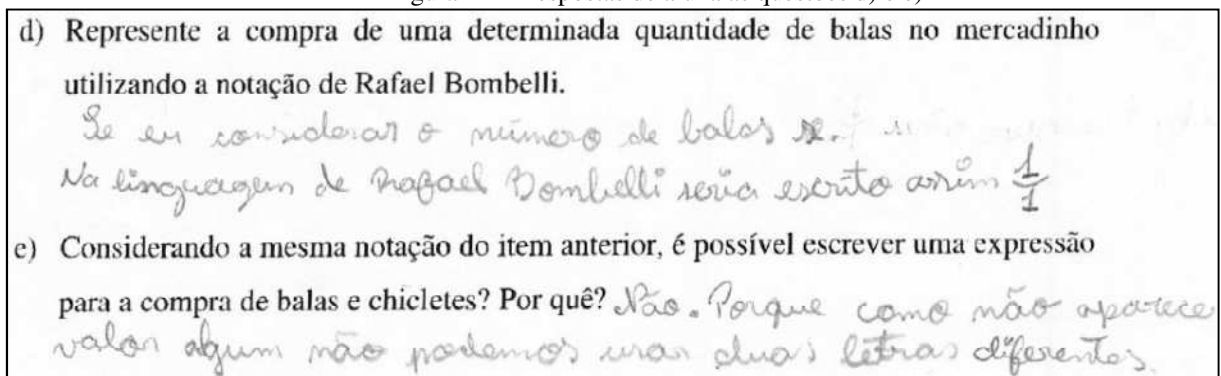 d) Represente a compra de uma determinada quantidade de balas no mercadinho
utilizando a notação de Rafael Bombelli.
Se eu considerar o número de balas x.
Na linguagem de Rafael Bombelli seria escrito assim 1/1
e) Considerando a mesma notação do item anterior, é possível escrever uma expressão
para a compra de balas e chicletes? Por quê? Não. Porque como não aparece
valor algum não podemos usar duas letras diferentes.